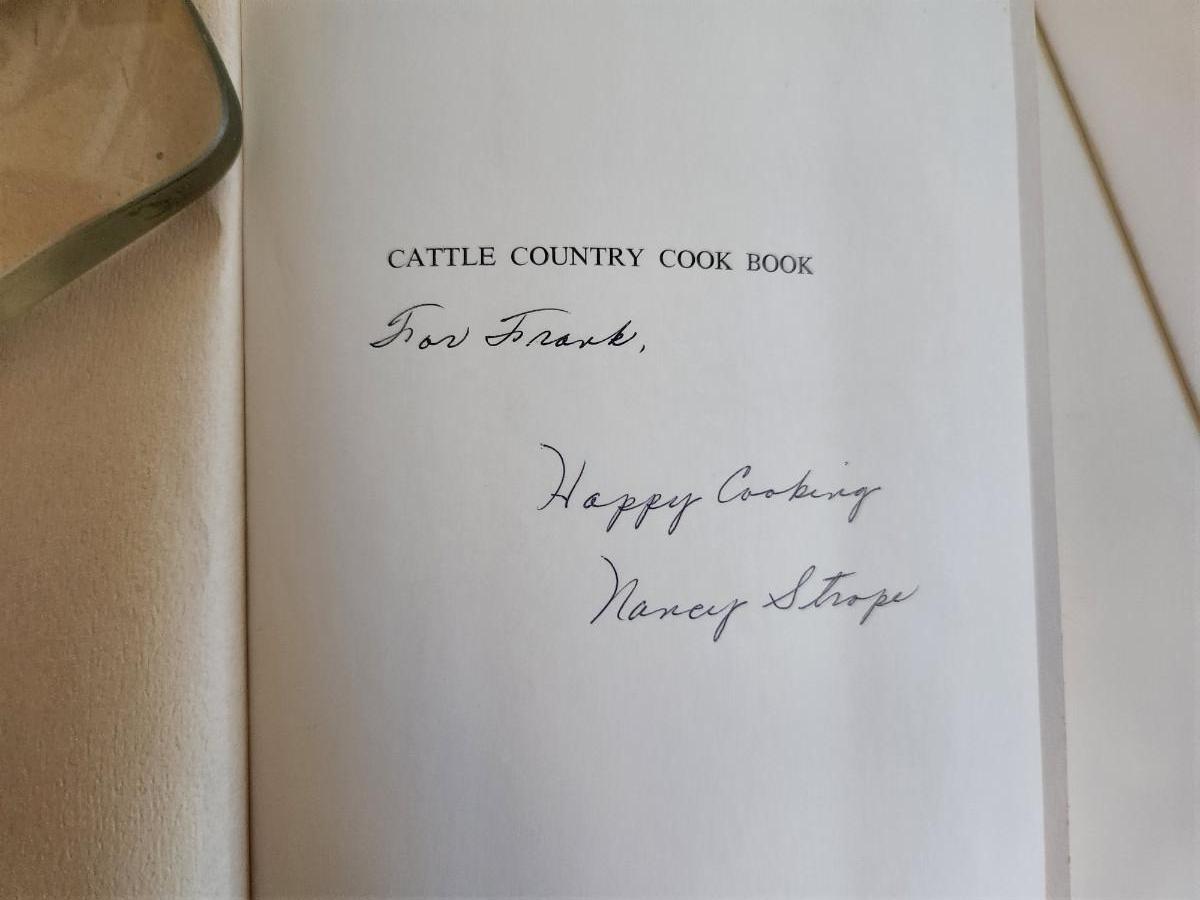 CATTLE COUNTRY COOK BOOK
For Frank,
Happy Cooking
Nancy Strope